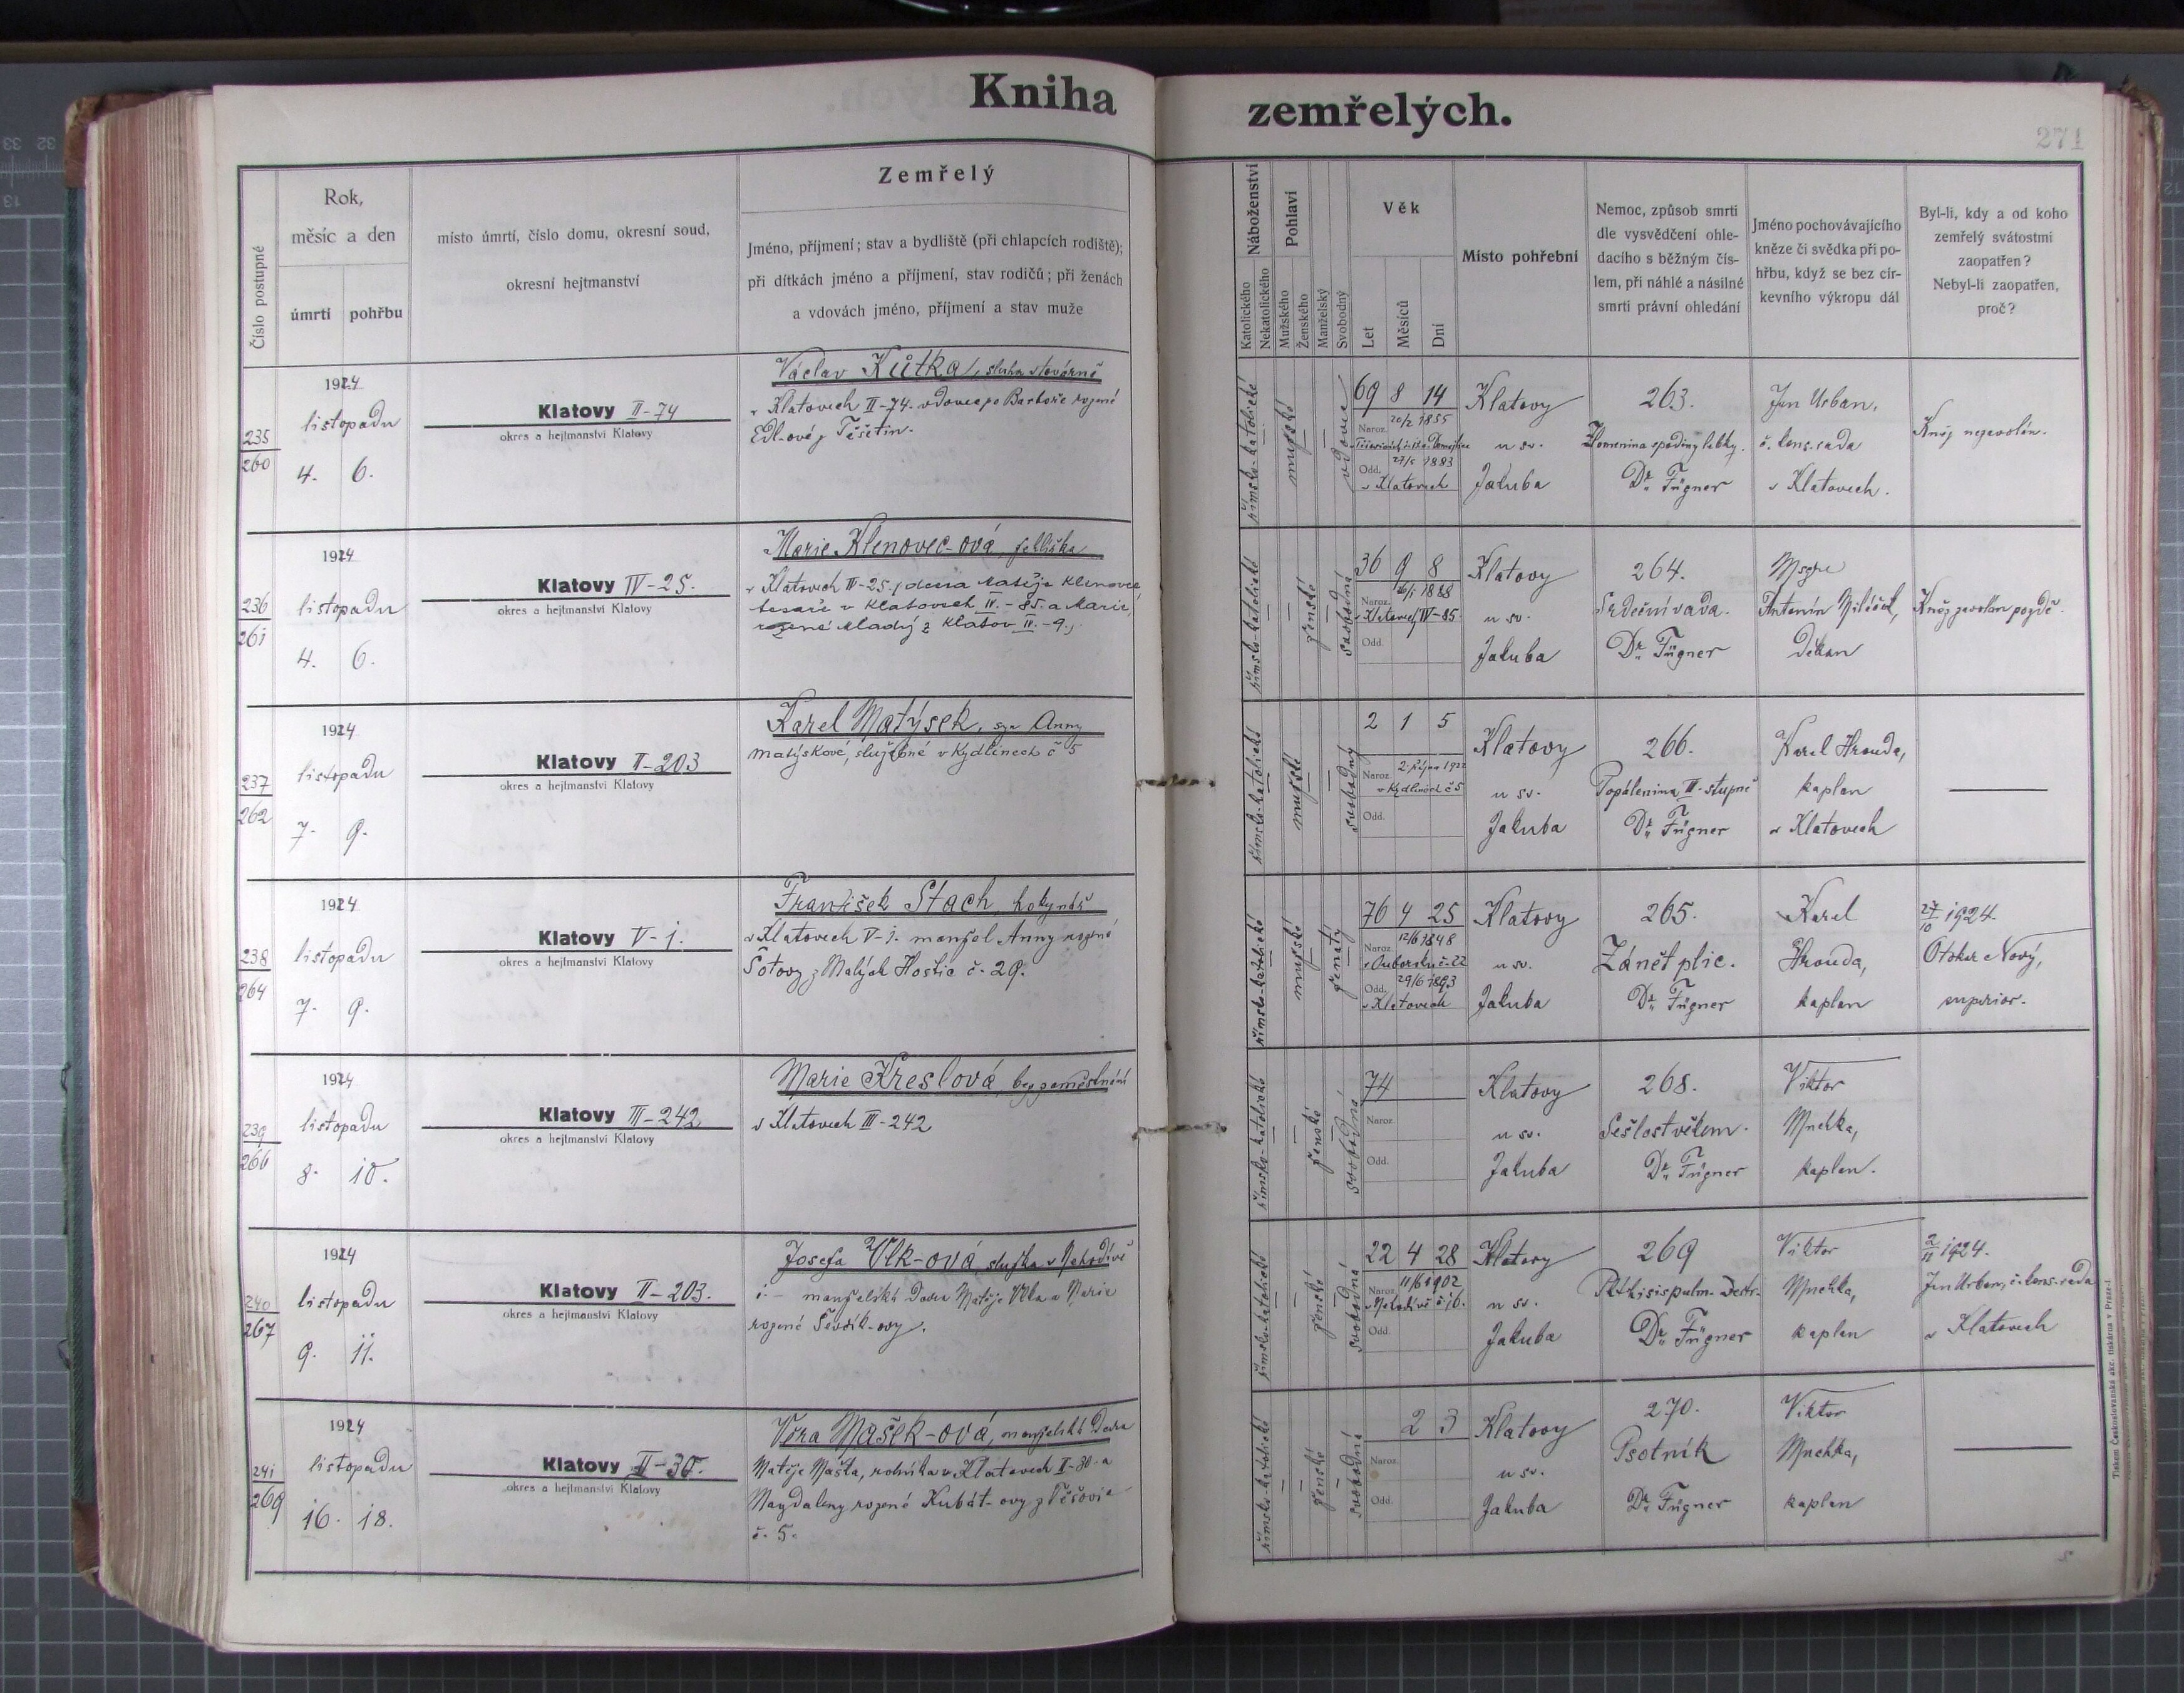 Kniha
zemřelých.
271
Číslo postupné
Rok,
měsíc a den
úmrtí
pohřbu
místo úmrtí, číslo domu, okresní soud,
okresní hejtmanství
Zemřelý
Jméno, příjmení; stav a bydliště (při chlapcích rodiště);
při dítkách jméno a příjmení, stav rodičů; při ženách
a vdovách jméno, příjmení a stav muže
Náboženství
Katolického
Nekatolického
Pohlaví
Mužského
Ženského
Manželský
Svobodný
Věk
Let
Měsíců
Dní
Místo pohřební
Nemoc, způsob smrti
dle vysvědčení ohle-
dacího s běžným čís-
lem, při náhlé a násilné
smrti právní ohledání
Jméno pochovávajícího
kněze či svědka při po-
hřbu, když se bez cír-
kevního výkropu dál
Byl-li, kdy a od koho
zemřelý svátostmi
zaopatřen?
Nebyl-li zaopatřen,
proč?
235
260
1924
listopadu
4. 6.
Klatovy II-74
okres a hejtmanství Klatovy
Václav Kůtka, sluha v továrně
v Klatovech II-74. vdovec po Barboře rozené
Edl-ové z Těšetin.
římsko-katolické
mužské
vdovec
69 8 14
Naroz. 20/2 1855
Odd. 27/5 1883
v Klatovech
Klatovy
u sv.
Jakuba
263.
Zlomenina spodiny lebky.
Dr. Fügner
Jan Urban,
č. kons. rada
v Klatovech.
Kněz nezavolán.
236
261
1924
listopadu
4. 6.
Klatovy IV-25.
okres a hejtmanství Klatovy
Marie Klenovec-ová
v Klatovech IV-25., dcera Matěje Klenovce
tesaře v Klatovech IV.-85. a Marie,
rozené Mladý z Klatov IV.-9.,
římsko-katolické
ženské
svobodná
36 9 8
Naroz. 26/1 1888
v Klatovech IV-85.
Odd.
Klatovy
u sv.
Jakuba
264.
Srdeční vada.
Dr. Fügner
Msgre
Antonín
děkan
Kněz zavolán pozdě.
237
262
1924
listopadu
7. 9.
Klatovy II-203
okres a hejtmanství Klatovy
Karel Matýsek, syn Anny
Matýskové, služebné v Kydlinech č 5
římsko-katolické
mužské
svobodný
2 1 5
Naroz. 2. října 1922
v Kydlinech č 5
Odd.
Klatovy
u sv.
Jakuba
266.
Popálenina II. stupně
Dr. Fügner
Karel Hrouda,
kaplan
v Klatovech
238
264
1924
listopadu
7. 9.
Klatovy V-1.
okres a hejtmanství Klatovy
František Stach, hokynář
v Klatovech V-1. manžel Anny rozené
Šotovy z Malých Hoštic č. 29.
římsko-katolické
mužské
ženatý
76 4 25
Naroz. 12/6 1848
Odd. 29/6 1893
v Klatovech
Klatovy
u sv.
Jakuba
265.
Zánět plic.
Dr. Fügner
Karel
Hrouda,
kaplan
27/10 1924.
Otokar Nový,
superior.
239
266
1924
listopadu
8. 10.
Klatovy III-242
okres a hejtmanství Klatovy
Marie Kreslová, bez zaměstnání
v Klatovech III-242
římsko-katolické
ženské
svobodná
74
Naroz.
Odd.
Klatovy
u sv.
Jakuba
268.
Sešlost věkem.
Dr. Fügner
Viktor
Mnehka,
kaplan.
240
267
1924
listopadu
9. 11.
Klatovy II-203.
okres a hejtmanství Klatovy
Josefa Vlk-ová, služka v Nehodívě
manželská dcera Matěje Vlka a Marie
rozené Ševčík-ovy.
římsko-katolické
ženské
svobodná
22 4 28
Naroz. 11/6 1902
v Nehodívě č. 16.
Odd.
Klatovy
u sv.
Jakuba
269
Phthisis pulm. destr.
Dr. Fügner
Viktor
Mnehka,
kaplan
2/11 1924.
Jan Urban, č. kons. rada
v Klatovech
241
269
1924
listopadu
16. 18.
Klatovy II-30.
okres a hejtmanství Klatovy
Věra Mašek-ová, manželská dcera
Matěje Maška, rolníka v Klatovech II-30 a
Magdaleny rozené Kubát-ovy z Těšovic
č. 5.
římsko-katolické
ženské
svobodná
2 3
Naroz.
Odd.
Klatovy
u sv.
Jakuba
270.
Psotník
Dr. Fügner
Viktor
Mnehka,
kaplan
Tiskem Československé akc. tiskárna v Praze-I.